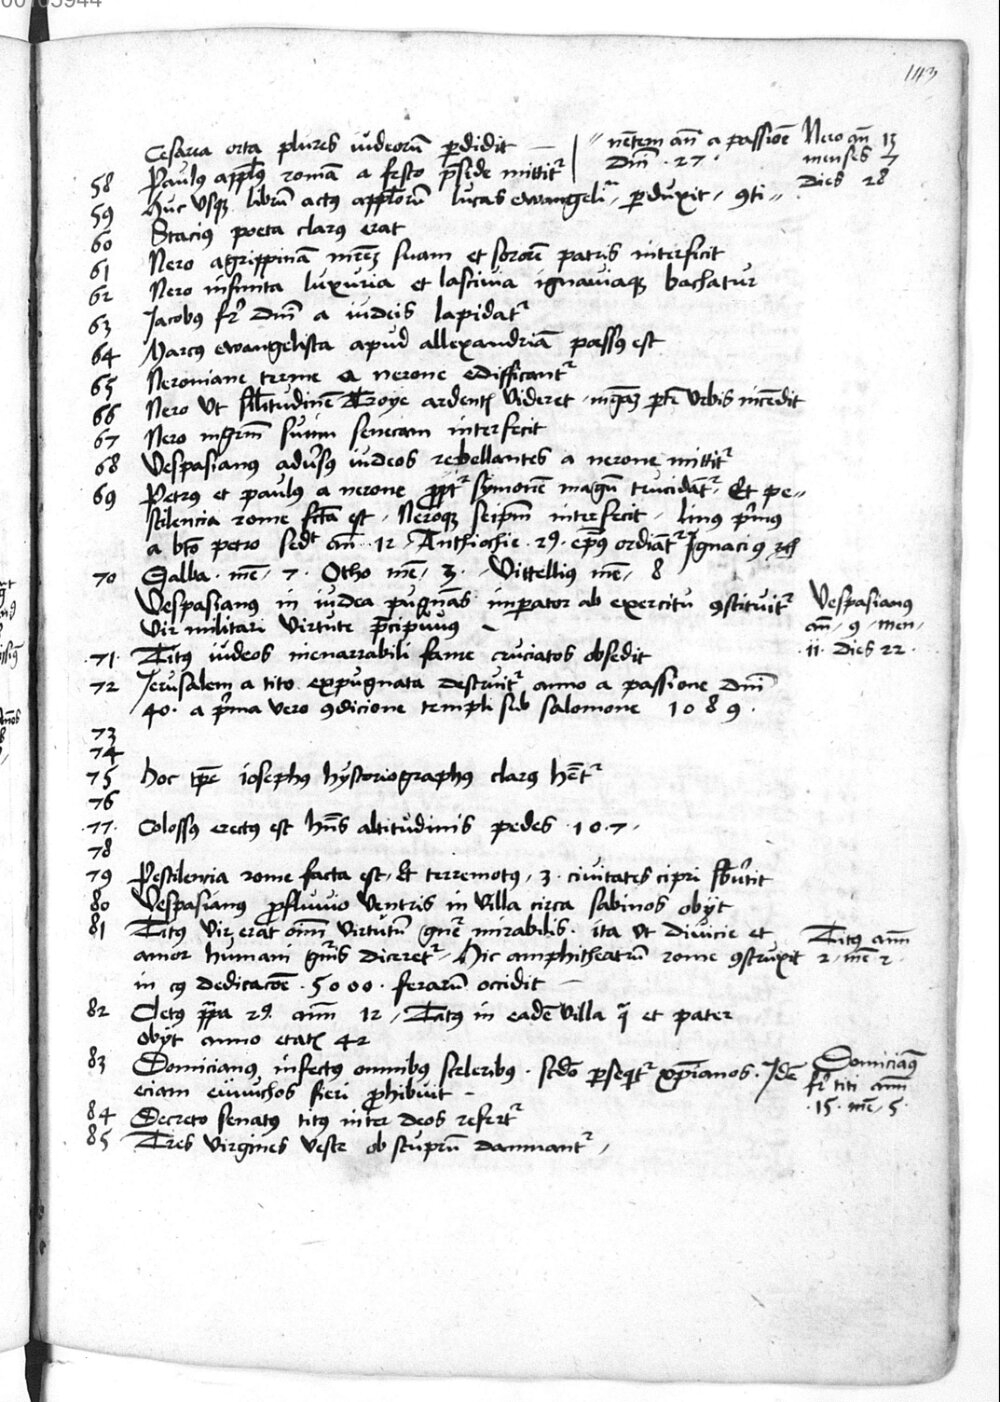 00105944
143
Cesarea orta plures iudeorū pdidit —
〃 nētem an̄ a passiōe
Dn̄i · 27 ·
Nero an̄ 13
menses 7
Dies 28
58 Paulꝯ applꝯ romā a festo p̄side mittitᷣ
59 Huc vsqꝫ librū actꝯ applorū lucas ewangeliᷤ pduxit, ꝯti〃
60 Stacius poeta clarꝯ erat
61 Nero agrippinā mr̄eꝫ suam et sororē patris interficit
62 Nero infinita luxuria et lascivia ignaviaqꝫ bachatur
63 Jacobꝯ fr̄ dn̄i a iudeis lapidatᷣ
64 Marcꝯ ewangelista apud allexandriā passꝯ est
65 Neroniane terme a nerone edifficantᷣ
66 Nero vt silitudinē Troye ardentꝭ videret mgaꝫ ptē vrbis incēdit
67 Nero mgr̄m suum senecam interfecit
68 Vespasianꝯ adusꝯ iudeos rebellantes a nerone mittitᷣ
69 Petrꝯ et paulꝯ a nerone ꝓptᷣ symonē magū trucidātᷣ, Et pe〃
stilencia rome fcā est, Neroqꝫ seipm̄ interfecit, linꝯ pꝰmꝯ
a bt̄o petro sedᷣt an̄ · 12, Anthiochie · 29 · ep̄ꝯ ordiātᷣ Jgnaciꝯ
70 Galba · mē, 7 · Otho mē, 3 · Vittelliꝯ mē, 8
Vespasianꝯ in iudea pugnās imperator ab exercitu ꝯstituitᷣ
vir militari virtute p̄cipuus —
Vespasianꝯ
an̄, 9, men,
· 11 · Dies 22 ·
· 71 · Titꝯ iudeos inenarrabili fame cruciatos obsedit
72 Jerusalem a tito expugnata destruitᷣ anno a passione dn̄i
40 · a pꝰma vero ꝯdicione templi sub salomone 1089 ·
73
74
75 hoc tp̄e iosephꝯ hystoriographꝯ clarꝯ hētᷣ
76
· 77 · Colossꝯ erectꝯ est hn̄s altitudinis pedes · 107,
78
79 Pestilencia rome facta est, Et terremotꝯ, 3 · civitates cipri sbꝰtit
80 Vespasianꝯ ꝓfluvio ventris in villa circa sabinos obijt
81 Titꝯ vir erat oīm virtutū gn̄e mirabilis · ita vt divicie et
amor humani gn̄is diceretᷣ, Hic amphitheatrū rome ꝯstruxit
in cꝯ dedicacōe · 5000 · ferarū occidit —
Titꝯ ann̄
2, mē 2 ·
82 Cletꝯ p̄pa 29 · ann̄ 12, Titꝯ in eadē villa q̄ et pater
obijt anno etatꝭ 42
83 Domicianꝯ infectꝯ omnibꝯ sceleribꝯ · scdo pseqtᷣ xp̄ianos · Jdē
eciam eunuchos fieri ꝓhibuit —
Domicianꝯ
fr̄ titi ann̄
· 15 · mē, 5 ·
84 Decreto senatꝯ titꝯ inter deos refertᷣ
85 Tres virgines veste ob stuprū damnantᷣ,